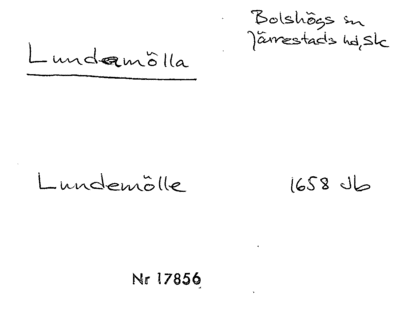 Bolshögs sn
Järrestads hd, Sk
Lundamölla
Lundemölle 1658 Jb
Nr 17856